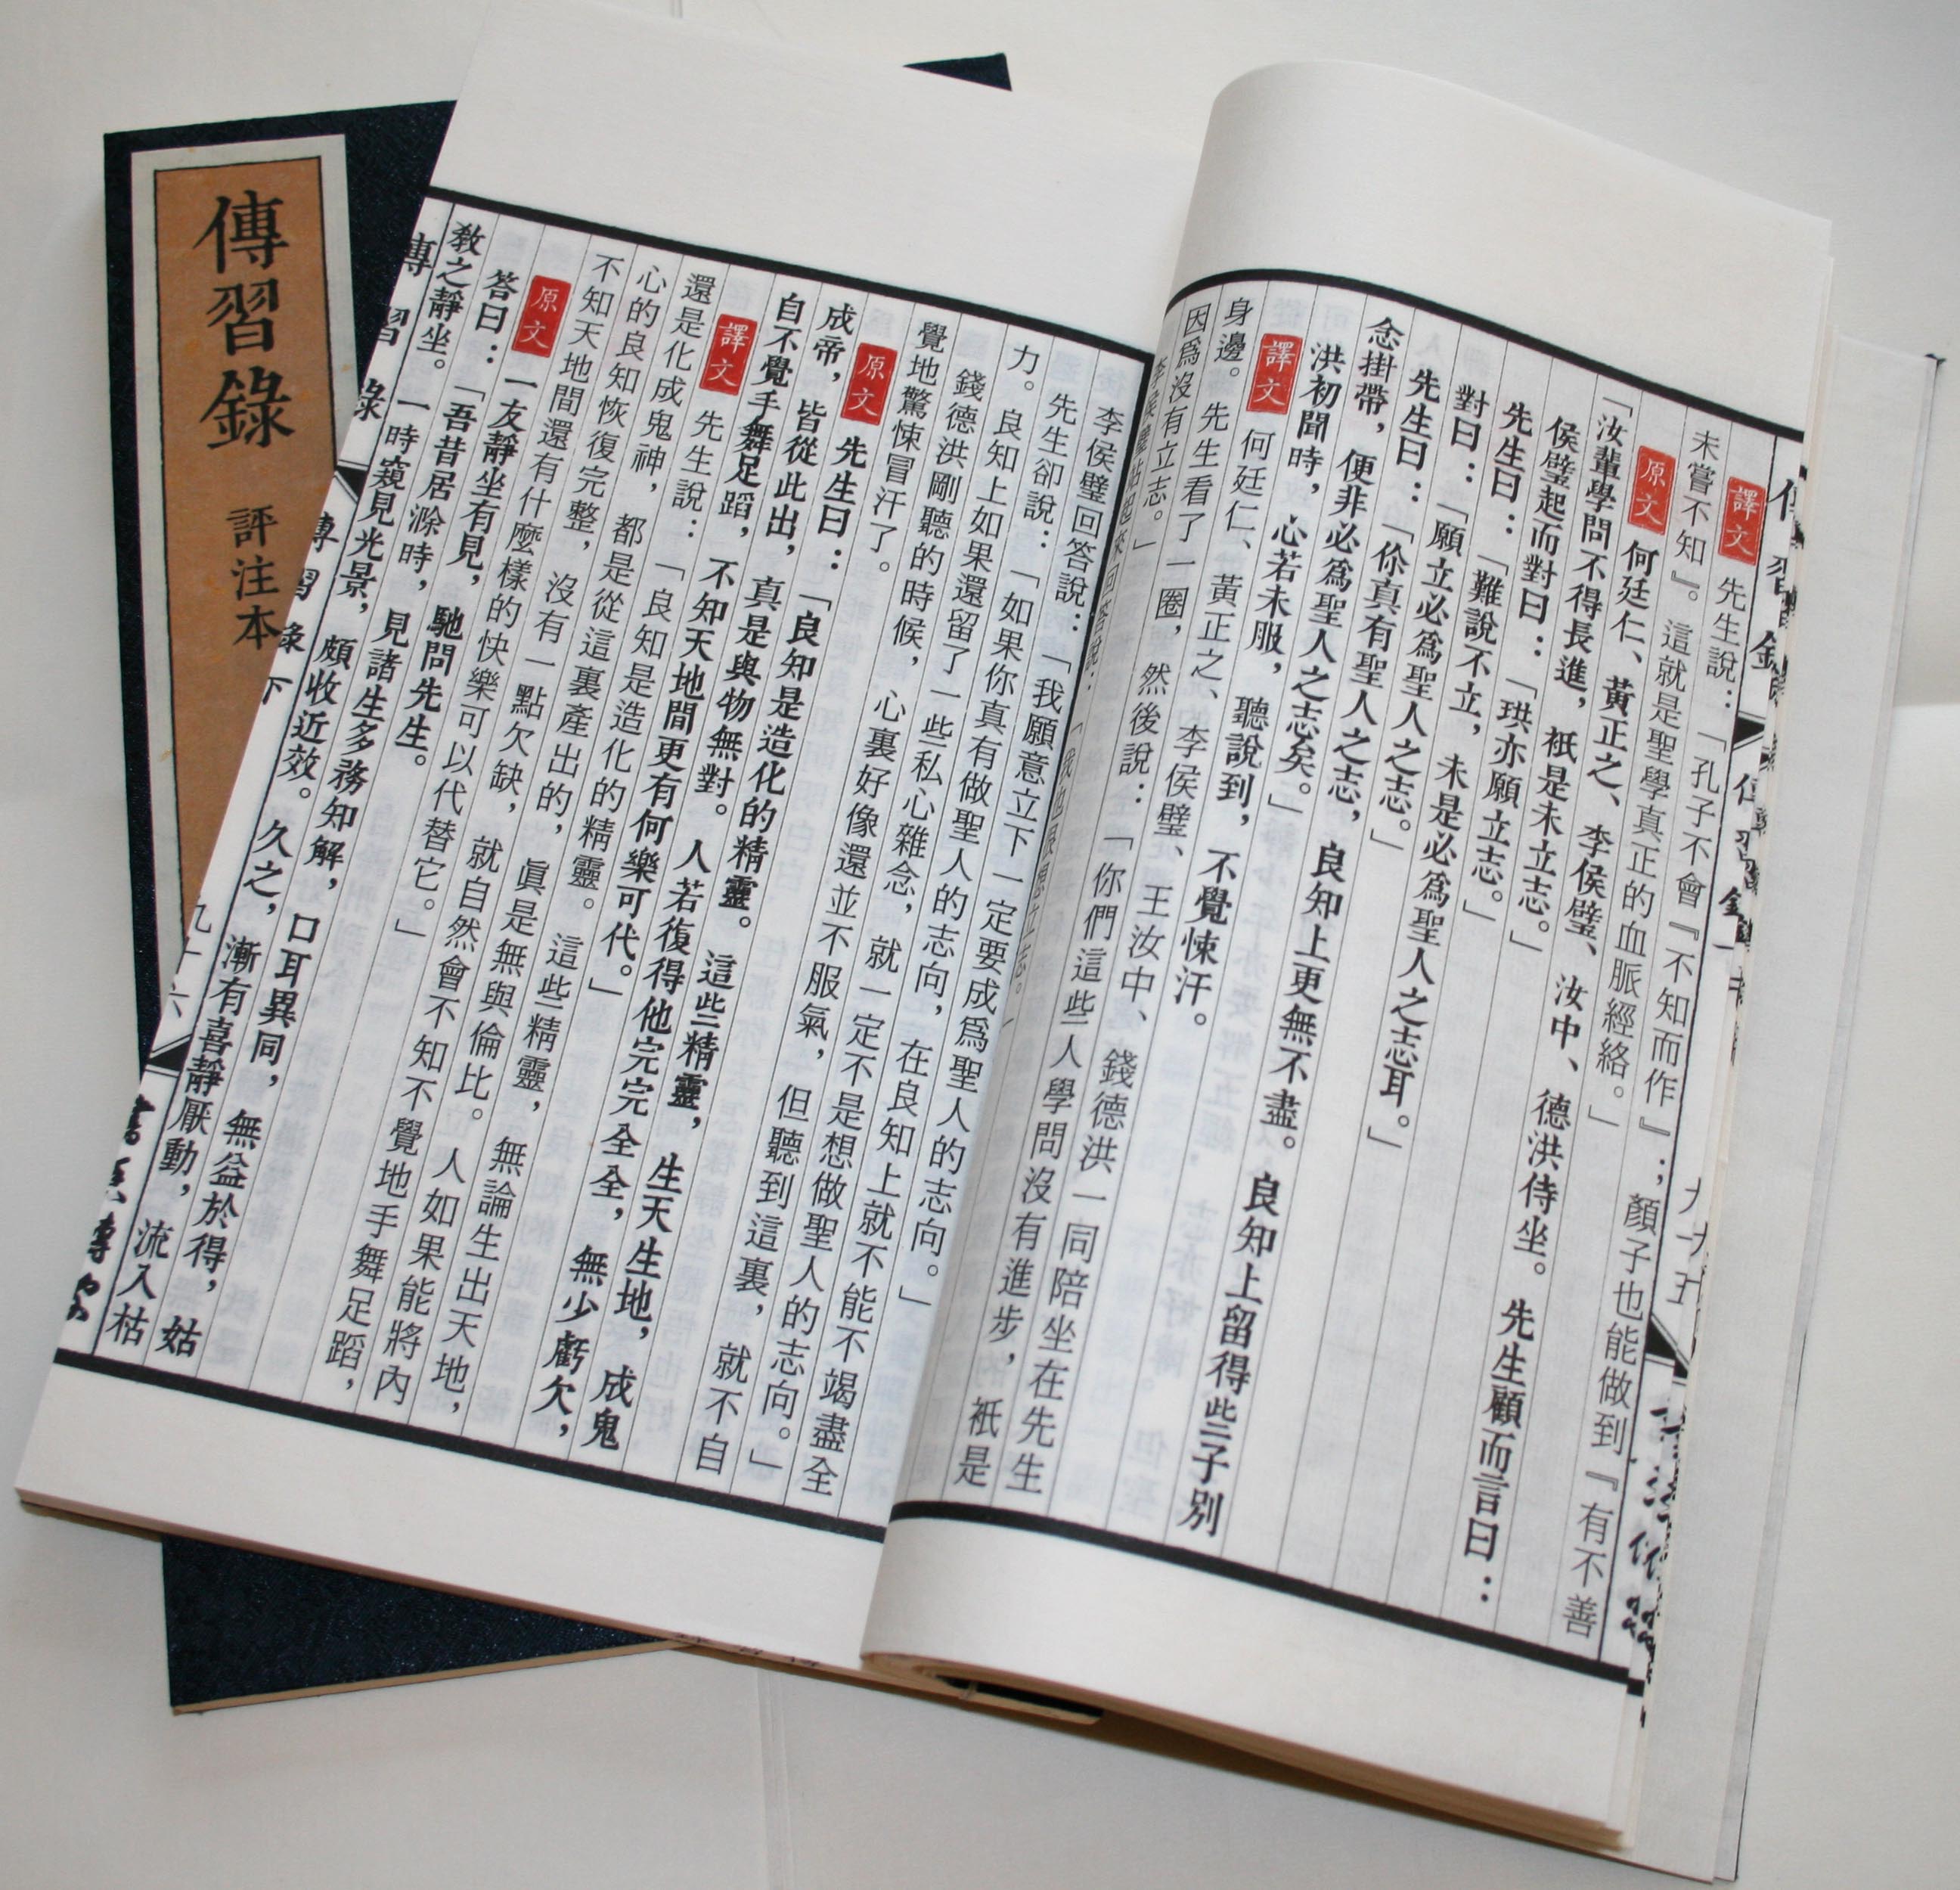 傳習錄 評注本
未嘗不知』。這就是聖學真正的血脈經絡。」
譯文 先生說：「孔子不會『不知而作』；顏子也能做到『有不善
原文 何廷仁、黃正之、李侯璧、汝中、德洪侍坐。先生顧而言曰：
「汝輩學問不得長進，衹是未立志。」
侯璧起而對曰：「珙亦願立志。」
先生曰：「難說不立，未是必爲聖人之志耳。」
對曰：「願立必爲聖人之志。」
先生曰：「你真有聖人之志，良知上更無不盡。良知上留得些子別
念掛帶，便非必爲聖人之志矣。」
洪初聞時，心若未服，聽說到，不覺悚汗。
譯文 何廷仁、黃正之、李侯璧、王汝中、錢德洪一同陪坐在先生
身邊。先生看了一圈，然後說：「你們這些人學問沒有進步，衹是
因爲沒有立志。」
李侯璧回答說：「我願意立下一定要成爲聖人的志向。」
先生卻說：「如果你真有做聖人的志向，在良知上就不能不竭盡全
力。良知上如果還留了一些私心雜念，就一定不是想做聖人的志向。」
錢德洪剛聽的時候，心裏好像還並不服氣，但聽到這裏，就不自
覺地驚悚冒汗了。
原文 先生曰：「良知是造化的精靈。這些精靈，生天生地，成鬼
成帝，皆從此出，真是與物無對。人若復得他完完全全，無少虧欠，
自不覺手舞足蹈，不知天地間更有何樂可代。」
譯文 先生說：「良知是造化的精靈。這些精靈，無論生出天地，
還是化成鬼神，都是從這裏產出的，眞是無與倫比。人如果能將內
心的良知恢復完整，沒有一點欠缺，就自然會不知不覺地手舞足蹈，
不知天地間還有什麼樣的快樂可以代替它。」
原文 一友靜坐有見，馳問先生。
答曰：「吾昔居滁時，見諸生多務知解，口耳異同，無益於得，姑
教之靜坐。一時窺見光景，頗收近效。久之，漸有喜靜厭動，流入枯
傳習錄 傳習錄下 九十六